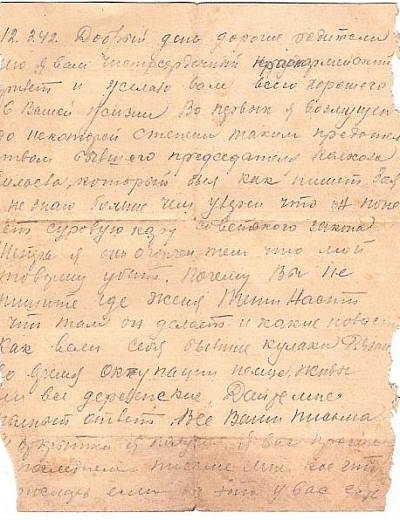 12. 2.42. Добрый день дорогие родители
шлю я вам чистосердечный красноармейский
привет и желаю вам всего хорошего
в Вашей жизни Во первых я возмущен
до некоторой степени таким предатель
ством бывшего председателя колхоза
который был как пишет
не знаю больше чем уверен что он поне
сет суровую кару советского закона
я очень огорчен тем что мой
товарищ убит. Почему Вы не
пишите где Женя
что там он делает и какие новости
Как вели себя бывшие кулаки
во время оккупации немцев, живы
ли все деревенские, Дайте мне
полный ответ. Все Ваши письма
и открытки я получил я вас
последнем письме мне кое что
если это у вас есть